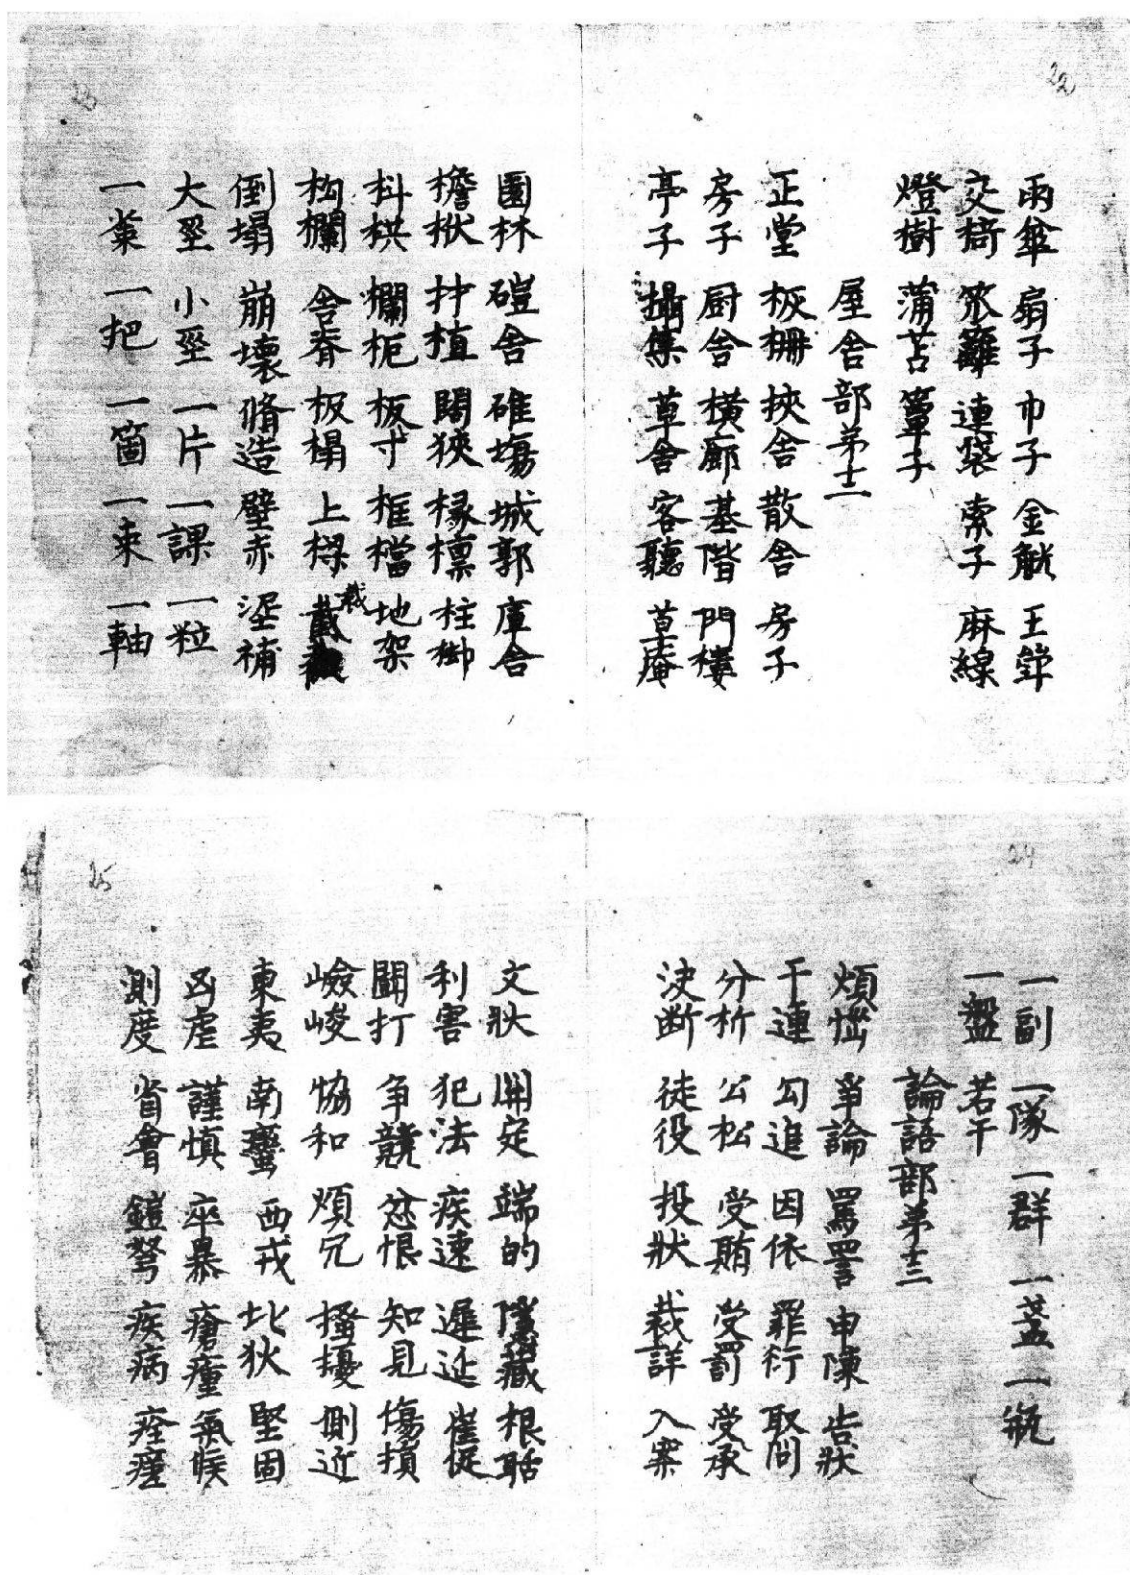 22
雨傘 扇子 巾子 金觥 王
交椅 笊籬 連袋 索子 麻線
燈樹 蒲苫 簟子
屋舍部苐十二
正堂 板柵 挾舍 散舍 房子
房子 厨舍 橫廊 基階 門樓
亭子 攝集 草舍 客廳 草庵
園林 磑舍 碓塲 城郭 庫舍
檐栿 㭇植 闊狹 椽檁 柱㭏
枓栱 欄枙 板寸 框檔 地架
枸欄 舍脊 板榻 上樑 截
倒塌 崩壞 脩造 壁赤 涇補
大坙 小坙 一片 一課 一粒
一棄 一把 一箇 一束 一軸
24
一副 一隊 一群 一盞 一瓶
一盤 若干
論語部苐十三
煩惱 爭論 罵詈 申陳 告狀
干連 勾追 因依 罪衍 取問
分析 公松 受賄 受罰 受承
决断 徒役 投狀 裁詳 入案
25
文狀 開定 端的 隱藏 根聒
利害 犯法 疾速 遲延 崔促
鬪打 争競 忿恨 知見 傷損
嶮峻 恊和 煩冗 搔擾 側近
東夷 南蠻 西戎 北狄 堅固
凶虐 謹慎 卒暴 瘡瘇 氣候
測度 省會 鎧弩 疾病 痊瘇